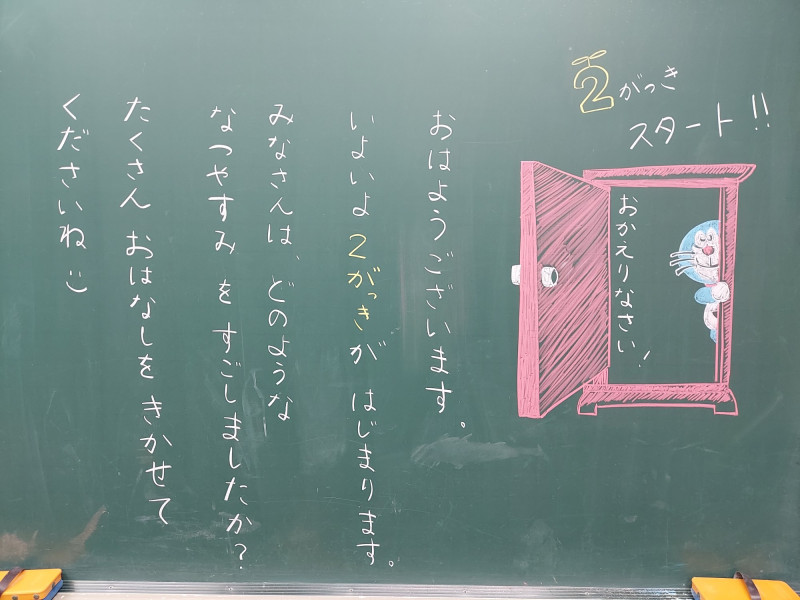 2がっき
スタート!!
おかえりなさい!
おはようございます。
いよいよ2がっきが はじまります。
みなさんは、どのような
なつやすみ を すごしましたか?
たくさん おはなしを きかせて
くださいね:)